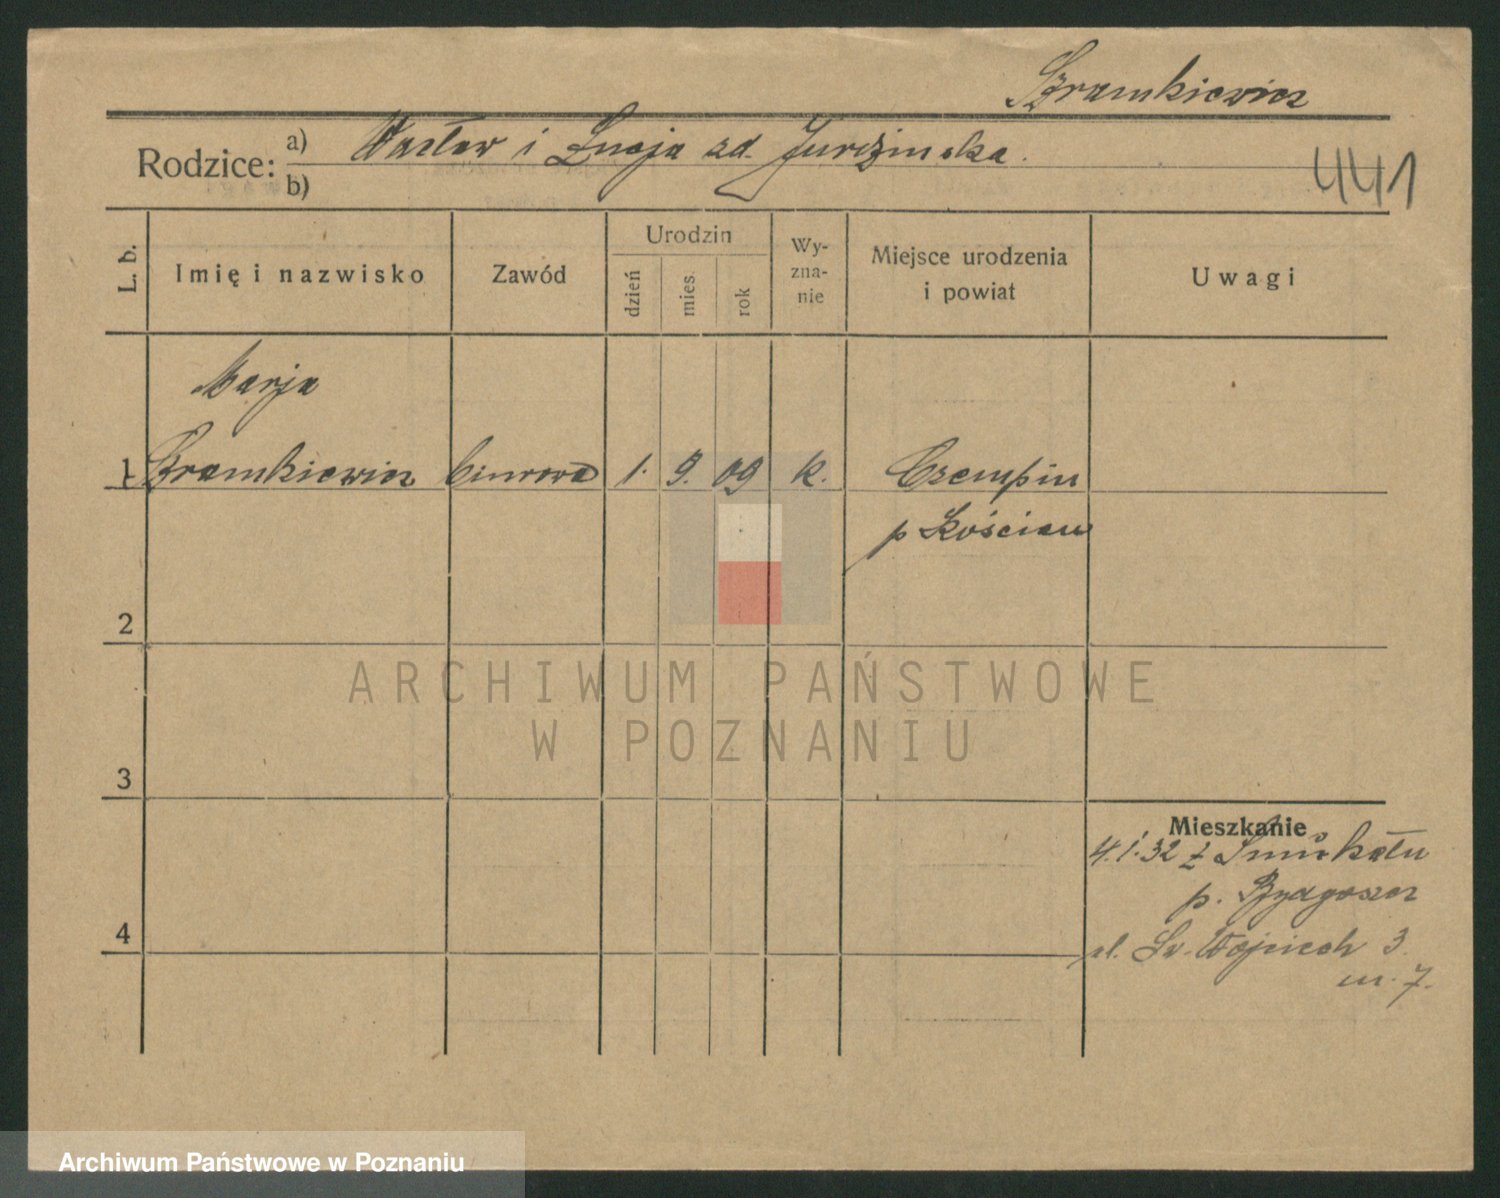 Szramkiewicz
Rodzice:
a) Wacław i Łucja zd. Jurczinska.
b)
441
L. b.
Imię i nazwisko
Zawód
Urodzin
dzień
mies.
rok
Wy-
zna-
nie
Miejsce urodzenia
i powiat
Uwagi
Marja
1 Szramkiewicz biurowa 1. 9. 09 k. Czempin
p Kościan
2
ARCHIWUM PAŃSTWOWE
W POZNANIU
3
Mieszkanie
4.1.32 z Smukału
p. Bydgoszcz
4
ul. Św. Wojciech 3.
m. 7.
Archiwum Państwowe w Poznaniu